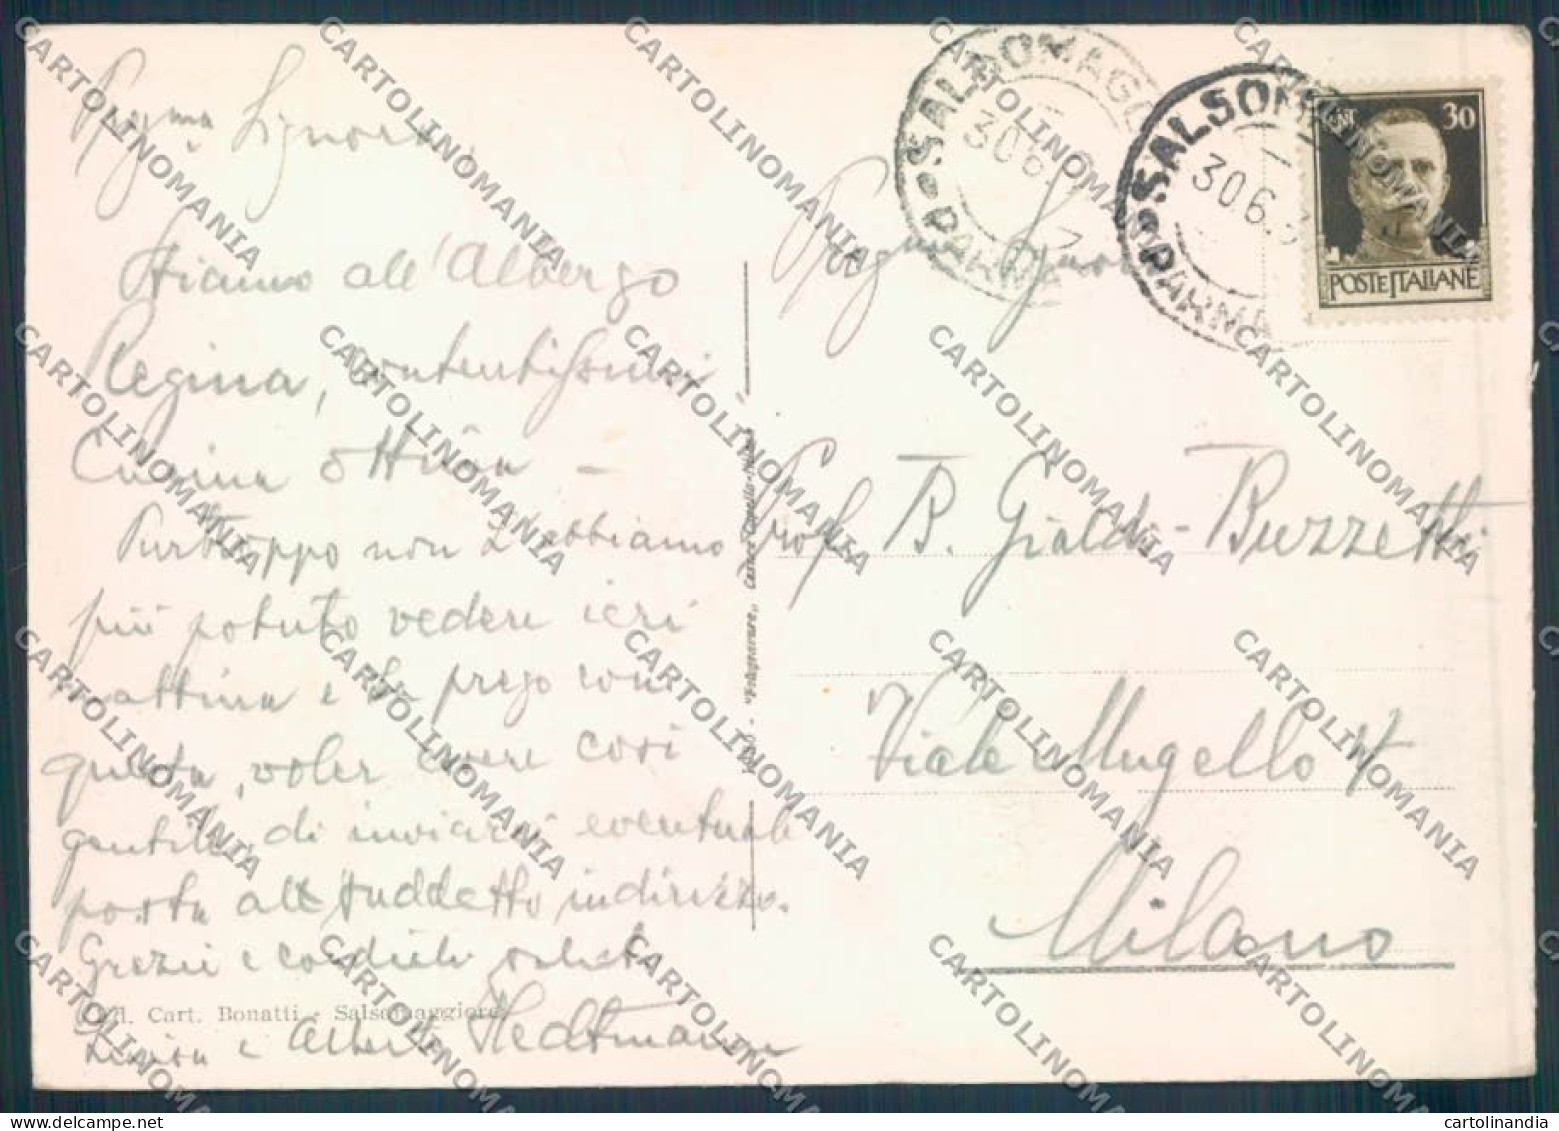 Pregma Signora,
Stiamo all'Albergo
Regina, contentissimi
Cucina ottima -
Purtroppo non L'abbiamo
più potuto vedere ieri
mattina e La prego con
questa, voler essere così
gentile di inviarci eventuale
posta al suddetto indirizzo.
Grazie e cordiali saluti
Ed. Cart. Bonatti - Salsomaggiore
e Alberto Hedtmann
SALSOMAGG
30.6.
PARMA
SALSOM
30.6.3
PARMA
CENT. 30
POSTE ITALIANE
Pregma Signora
Prof. B. Gialdi-Buzzetti
Viale Mugello
Milano
CARTOLINOMANIA
cartolinandia